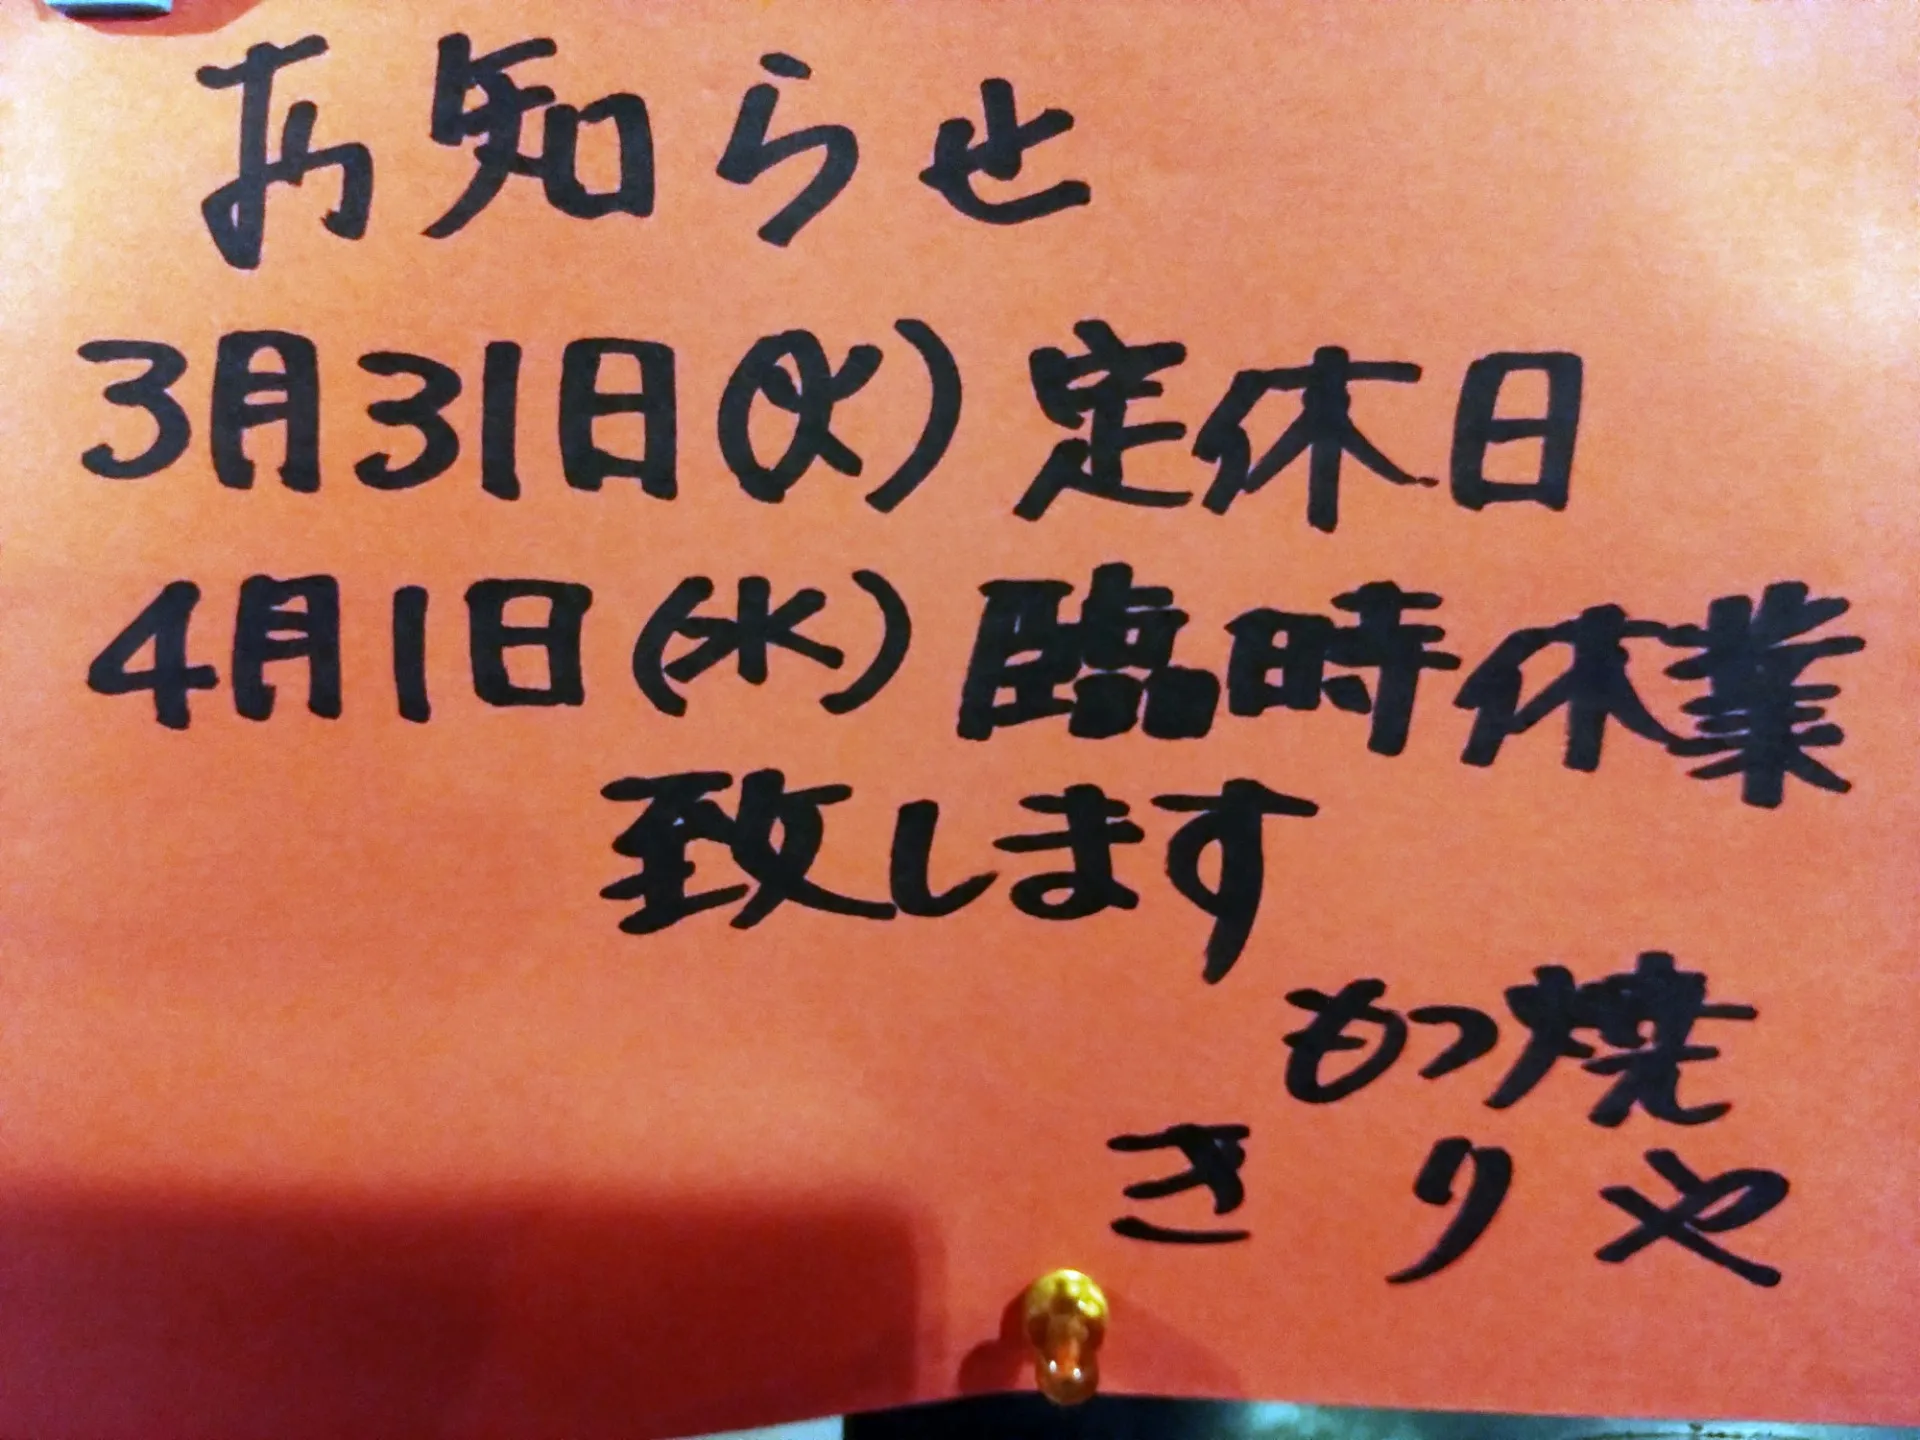 お知らせ
3月31日(火)定休日
4月1日(水)臨時休業
致します
もつ焼
きりや